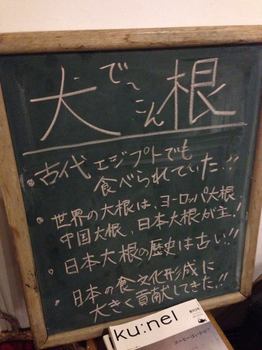 犬根
で〜こん
・古代エジプトでも
食べられていた!!
・世界の大根は、ヨーロッパ大根、
中国大根、日本大根が主!
・日本大根の歴史は古い!!
・日本の食文化形成に
大きく貢献してきた!!
ku:nel